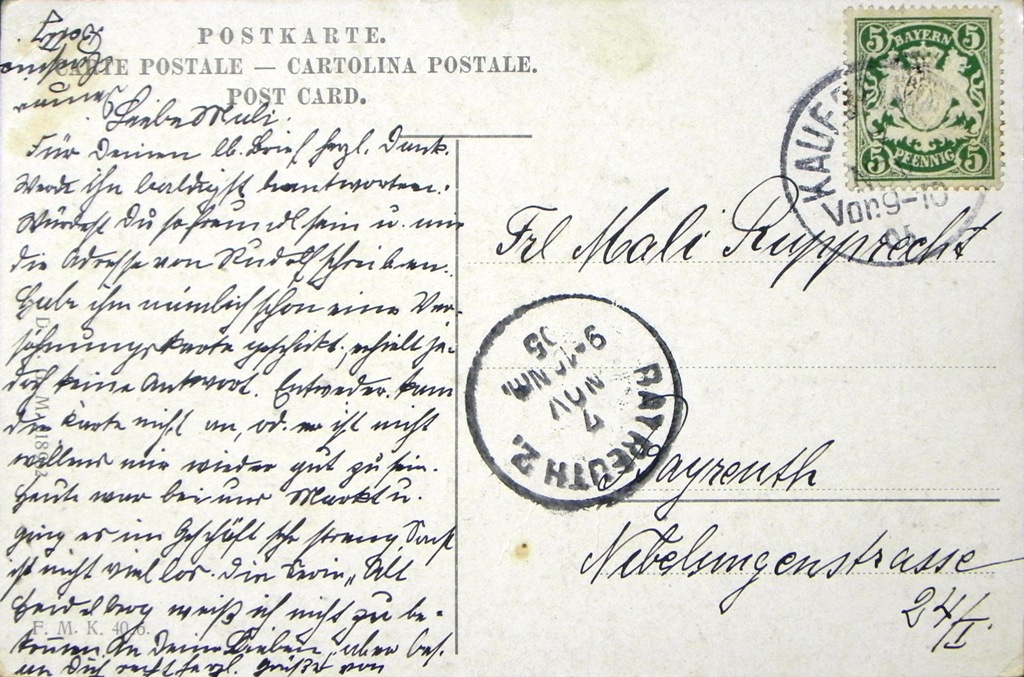 POSTKARTE.
CARTE POSTALE — CARTOLINA POSTALE.
POST CARD.
Liebe Mali.
Für Deinen lb. Brief herzl. Dank.
Werde ihn baldigst beantworten.
Würdest Du so freundl sein u. mir
die Adresse von Rudolf schreiben.
Habe ihm nämlich schon eine Ver-
söhnungskarte geschickt, erhielt je-
doch keine Antwort. Entweder kam
die Karte nicht an, od. er ist nicht
willens mir wieder gut zu sein.
Heute war bei uns Markt u.
ging es im Geschäft sehr streng, Sonst
ist nicht viel los. Die "Alt
Heidelberg weiß ich nicht zu be-
kommen. An Deine Lieben, aber bes.
an Dich recht herzl. Grüße von
D. M. 18
F. M. K. 40 6.
BAYERN
5 5
5 5
PFENNIG
KAUF
Vor. 9-10
05
Frl Mali Rupprecht
BAYREUTH 2.
7
NOV
9-10 Nm.
05
Bayreuth
Nibelungenstrasse
24/I.